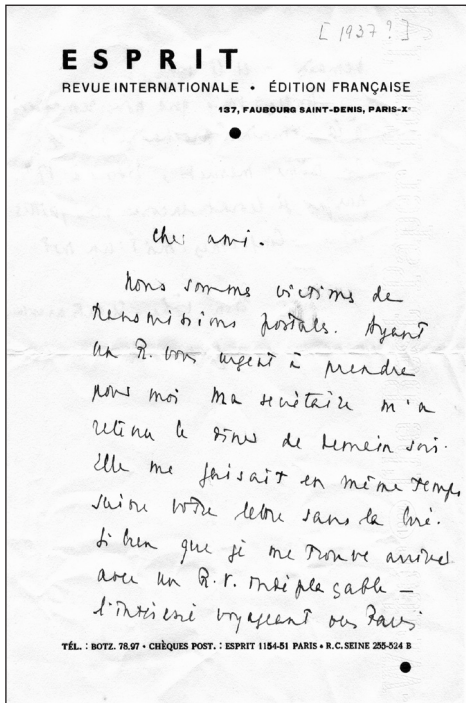 [1937?]
ESPRIT
REVUE INTERNATIONALE • ÉDITION FRANÇAISE
137, FAUBOURG SAINT-DENIS, PARIS-Xᵉ
Cher ami.
Nous sommes victimes de
transmissions postales. Ayant
un R. vous urgent à prendre
pour moi ma secrétaire m'a
retenu le dîner de demain soir.
Elle me faisait en même temps
suivre votre lettre sans la lire.
Si bien que je me trouve arriver
avec un R.V. indéplaçable –
l'intéressé voyageant Paris
TÉL. : BOTZ. 78.97 • CHÈQUES POST. : ESPRIT 1154-51 PARIS • R.C. SEINE 255-524 B